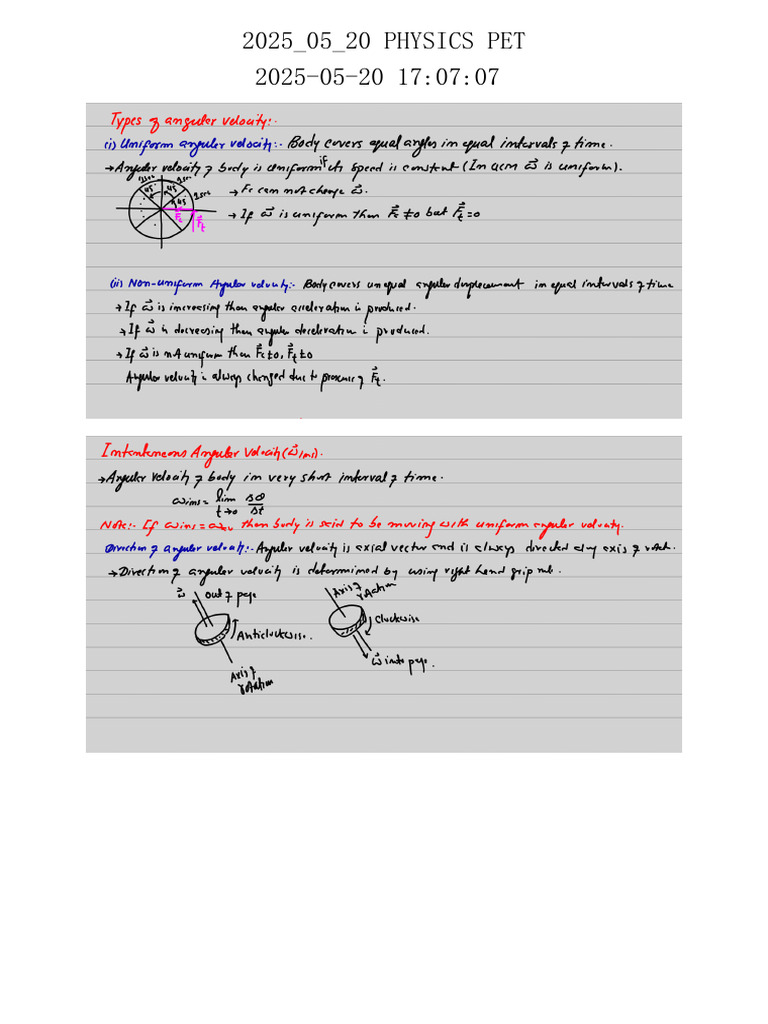 2025_05_20 PHYSICS PET
2025-05-20 17:07:07
Types of angular velocity:-
(i) Uniform angular velocity:- Body covers equal angles in equal intervals of time.
→ Angular velocity of body is uniform if its speed is constant (In UCM ω⃗ is uniform).
1sec 1sec 1sec
45 45 45
→ Fc can not change ω⃗.
F⃗c F⃗t
→ If ω⃗ is uniform than F⃗c ≠ 0 but F⃗t = 0
(ii) Non-uniform Angular velocity:- Body covers unequal angular displacement in equal intervals of time
→ If ω⃗ is increasing than angular acceleration is produced.
→ If ω⃗ is decreasing than angular deceleration is produced.
→ If ω⃗ is not uniform than F⃗c ≠ 0, F⃗t ≠ 0
Angular velocity is always changed due to presence of F⃗t.
Intantaneous Angular Velocity (ω⃗ins).
→ Angular velocity of body in very short interval of time.
ωins = lim t→0 Δθ/Δt
Note:- If ωins = ωav than body is said to be moving with uniform angular velocity.
Direction of angular velocity:- Angular velocity is axial vector and is always directed along axis of rotat.
→ Direction of angular velocity is determined by using right hand grip rule.
ω⃗ out of page
Axis of rotation
Anticlockwise.
Clockwise
ω⃗ into page.
Axis of rotation